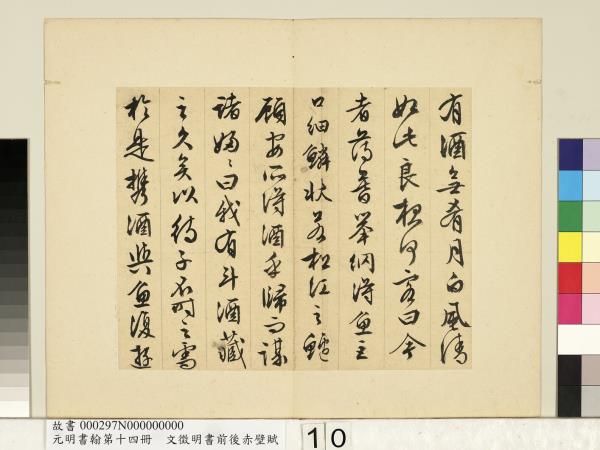 有酒無肴月白風清
如此良夜何客曰今
者薄暮舉網得魚巨
口細鱗狀若松江之鱸
顧安所得酒乎歸而謀
諸婦〻曰我有斗酒藏
之久矣以待子不時之需
於是攜酒與魚復遊
故書 000297N000000000
元明書翰第十四冊 文徵明書前後赤壁賦
10